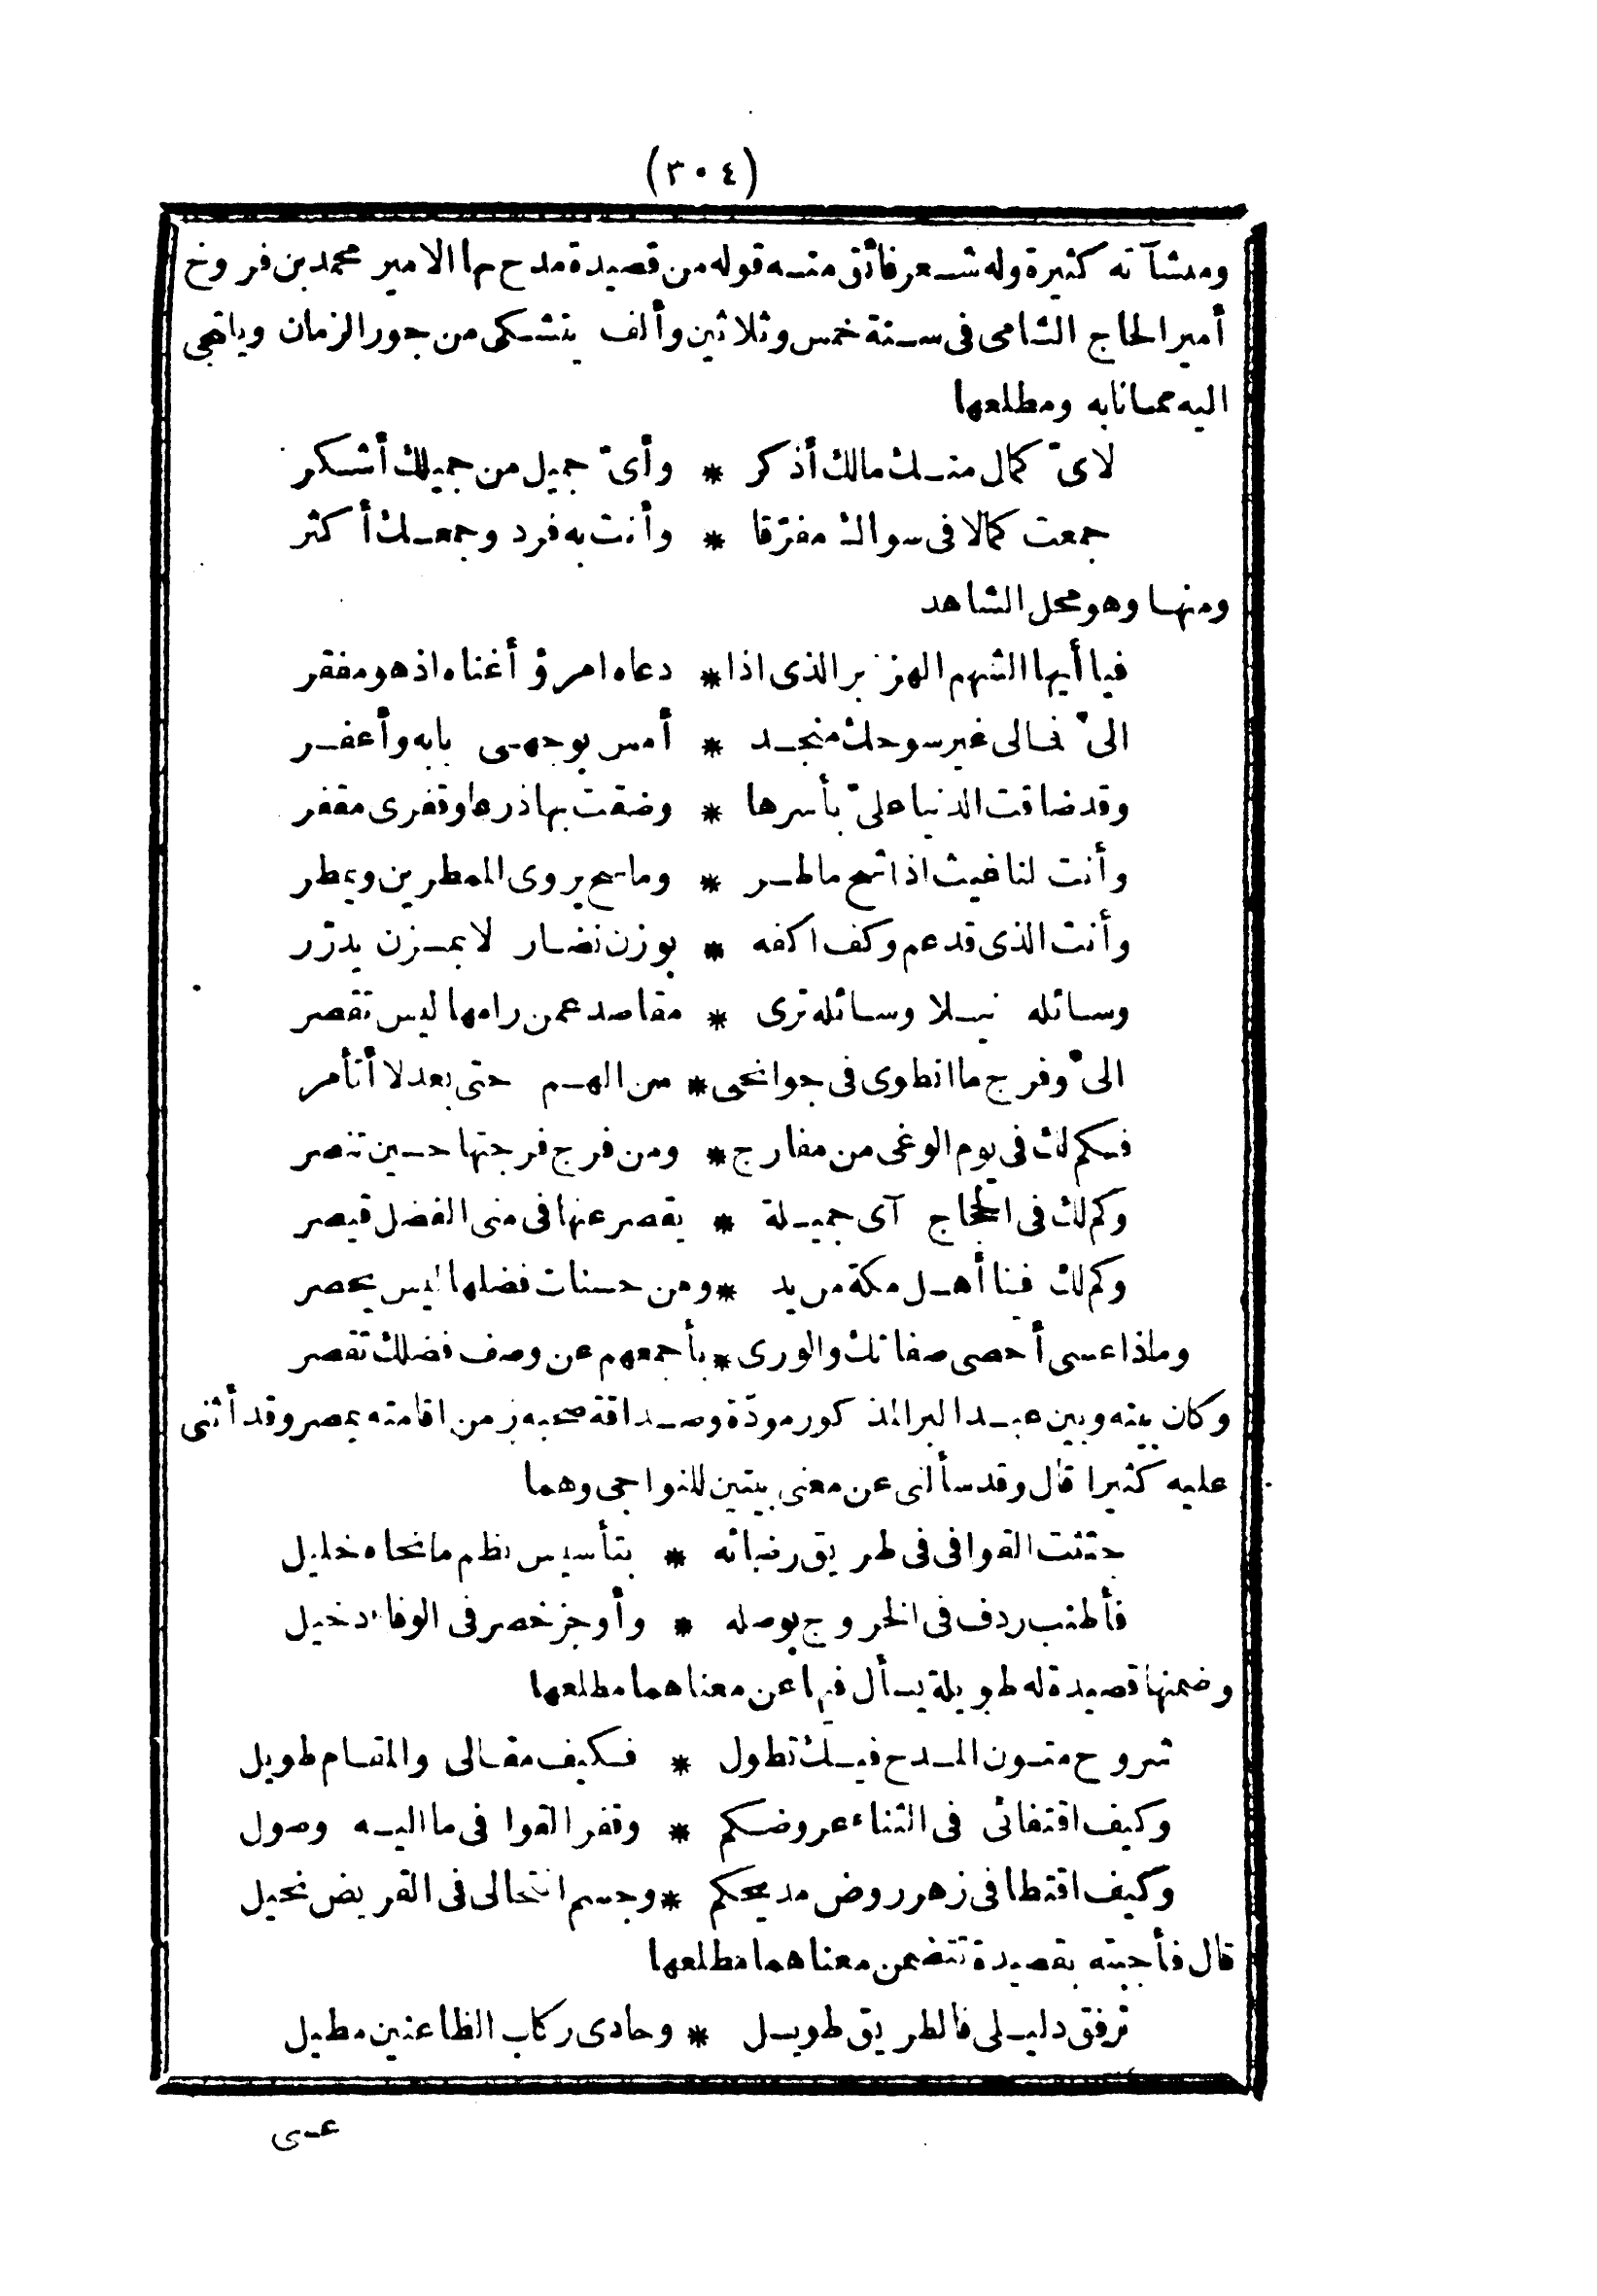 (٣٠٤)
ومنشآته كثيرة وله شعر فائق منه قوله من قصيدة مدح بها الامير محمد بن فروخ
أمير الحاج الشامى فى سنة خمس وثلاثين وألف يتشكى من جور الزمان ويلتجى
اليه ممانابه ومطلعها
لاىّ كمال منك مالك أذكر * وأىّ جميل من جميلك أشكر
جمعت كمالا فى سواك مفرّقا * وأنت به فرد وجمعك أكثر
ومنها وهو محل الشاهد
فيا أيها الشهم الهزبر الذى اذا * دعاه امرؤ أغناه اذ هو مفقر
الىّ فمالى غير سوحك منجد * أمس بوجهى بابه وأعفر
وقد ضاقت الدنيا علىّ بأسرها * وضقت بها ذرعا وقفرى مقفر
وأنت لنا غيث اذا شح ماطر * وما سح يروى الممطرين ويمطر
وأنت الذى قد عم وكف اكفه * بوزن نضار لا بمزن يدرّر
وسائله نيلا وسائله ترى * مقاصد عمن رامها ليس تقصر
الىّ وفرج ما انطوى فى جوانحى * من الهم حتى بعد لا أتأمر
فكم لك فى يوم الوغى من مفارج * ومن فرج فرجتها حين تنصر
وكم لك فى الحجاج آى جميلة * يقصر عنها فى منى الفضل قيصر
وكم لك فينا أهل مكة من يد * ومن حسنات فضلها ليس يحصر
وماذا عسى أحصى صفاتك والورى * بأجمعهم عن وصف فضلك تقصر
وكان بينه وبين عبد البر المذكور مودّة وصداقة صحبه زمن اقامته بمصر وقد أثنى
عليه كثيرا قال وقد سألنى عن معنى بيتين للنواجى وهما
حثثت القوافى فى طريق رضائه * بتأسيس نظم مانحاه خليل
فأطنب ردف فى الخروج بوصله * وأوجز خصر فى الوفاء دخيل
وضمنها قصيدة له طويلة يسأل فيها عن معناهما مطلعها
شروح متون المدح فيك تطول * فكيف مقالى والمقام طويل
وكيف اقتفائى فى الثناء عروضكم * وقفر القوافى ما اليه وصول
وكيف اقتطافى زهر روض مديحكم * وجسم انتحالى فى القريض نحيل
قال فأجبته بقصيدة تتضمن معناهما مطلعها
ترفق دليلى فالطريق طويل * وحادى ركاب الظاعنين مطيل
عسى